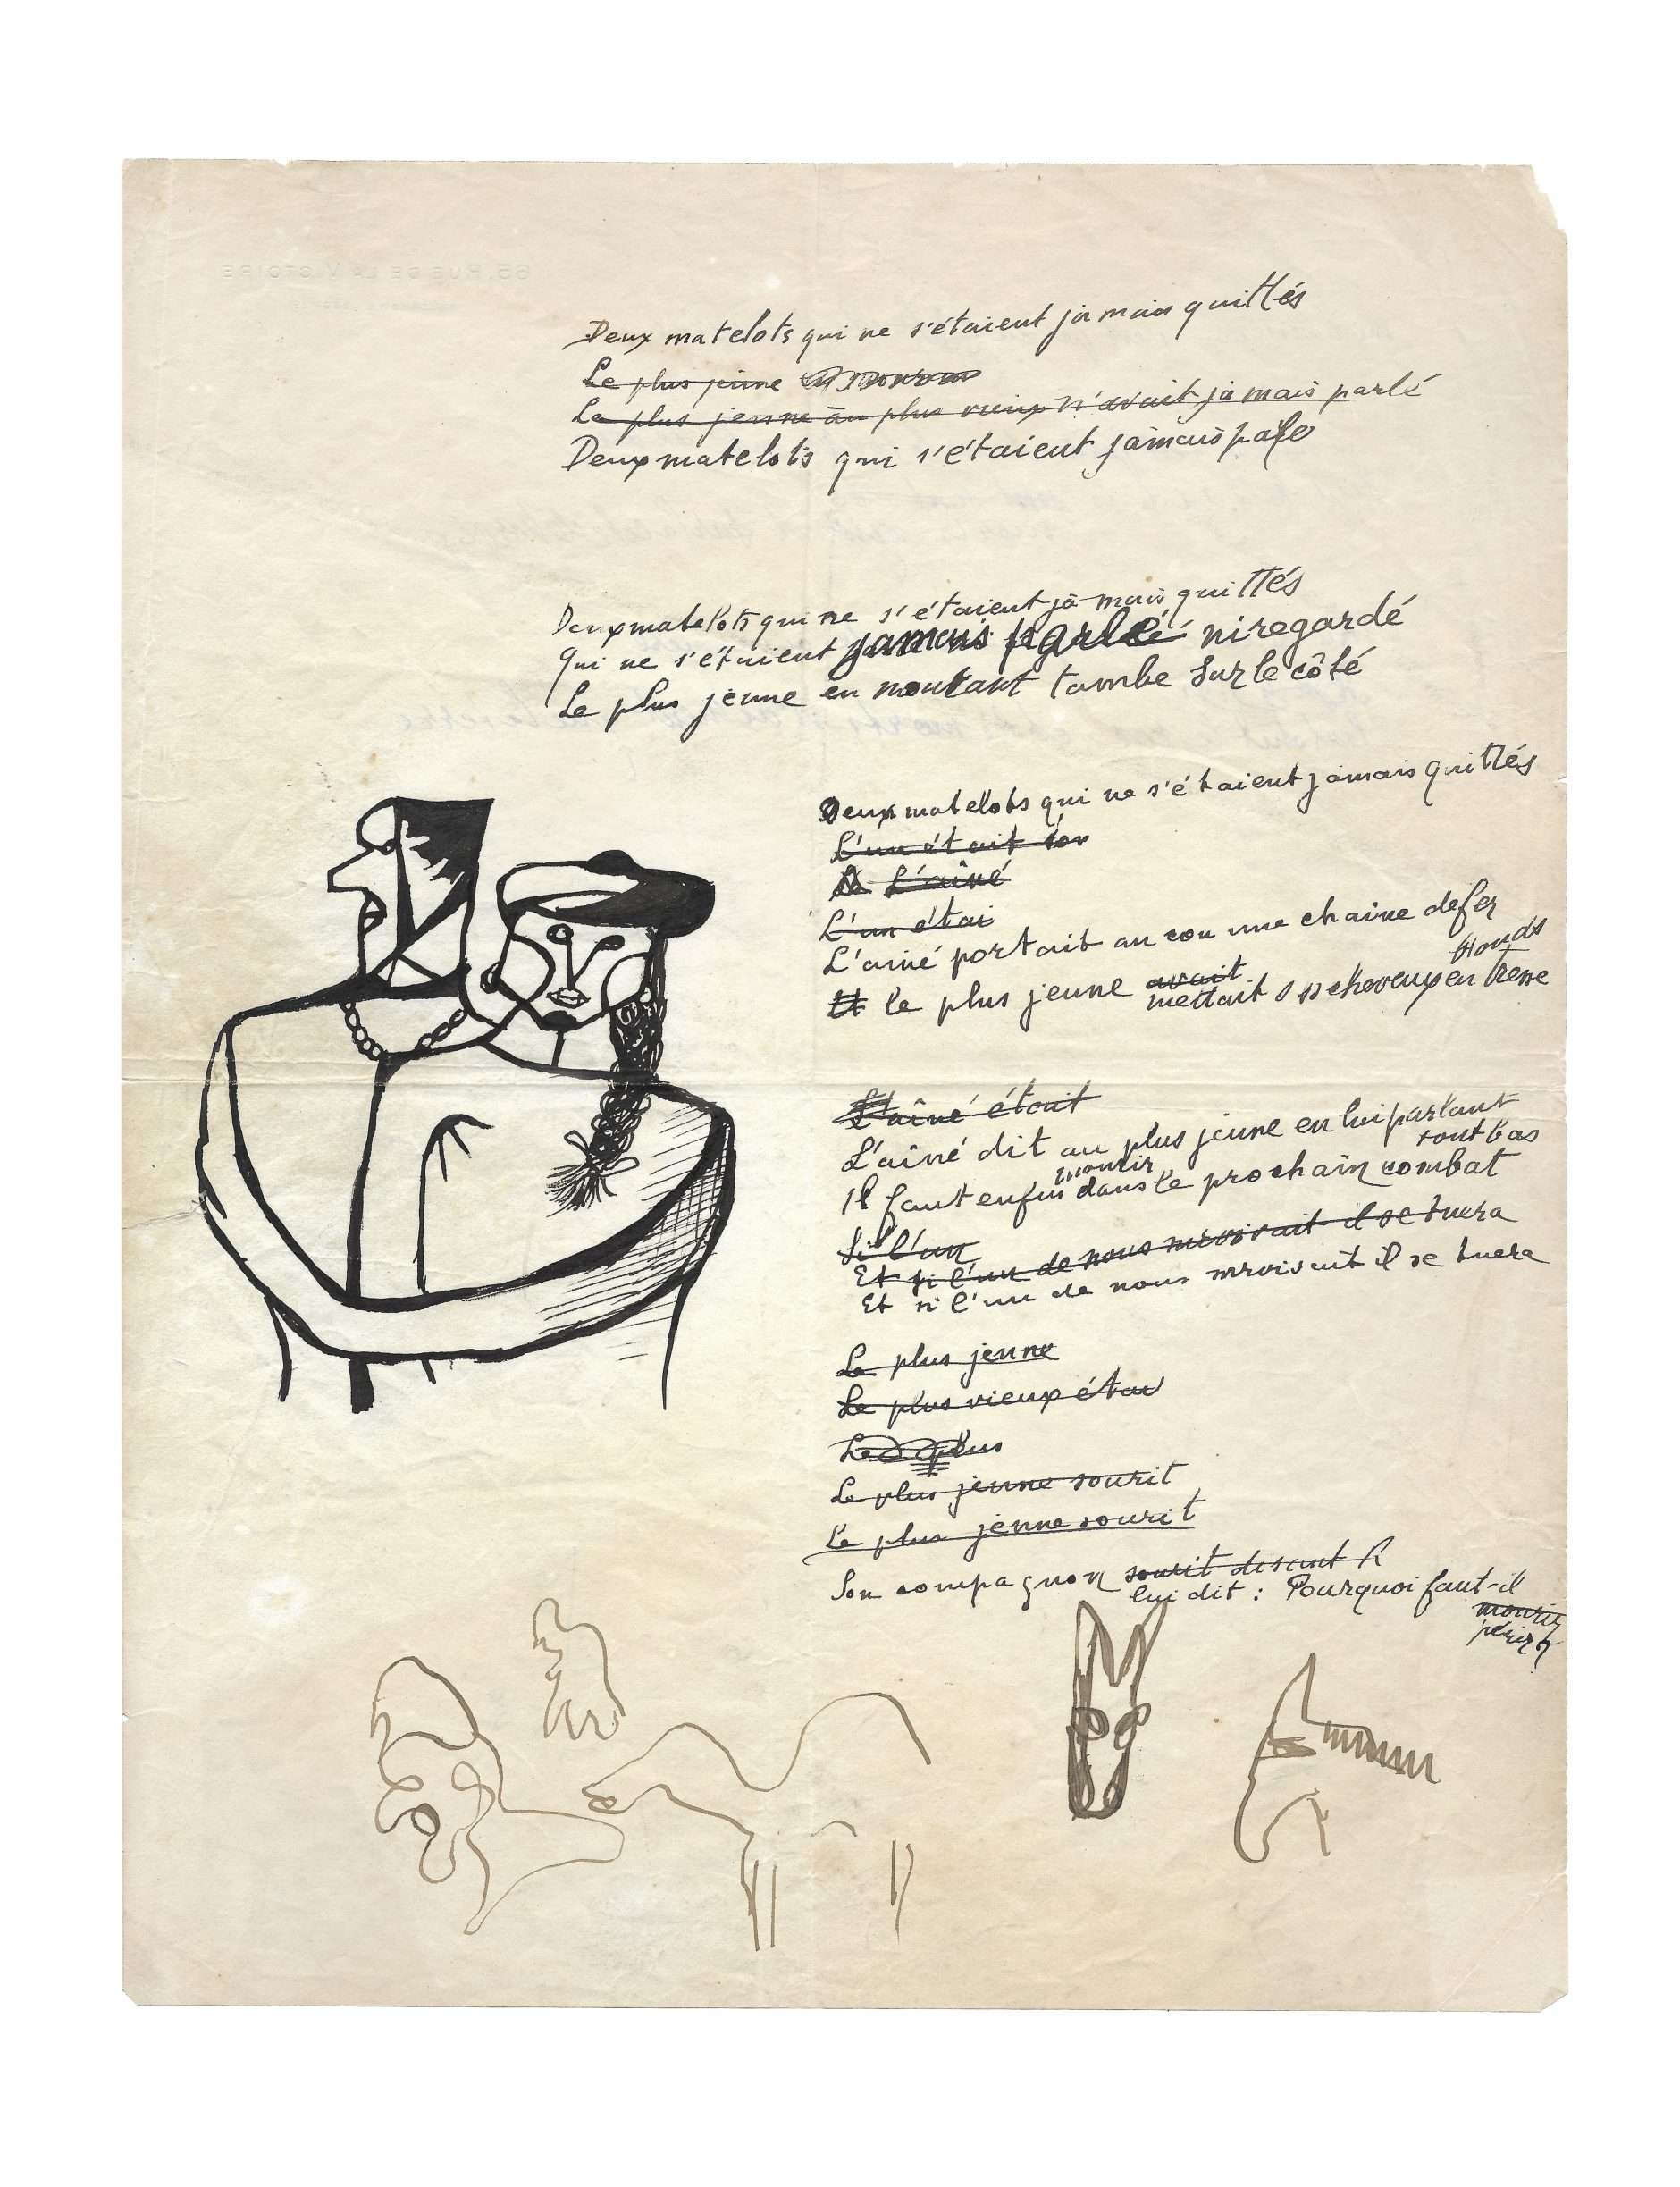 65, RUE DE LA VICTOIRE
Deux matelots qui ne s'étaient jamais quittés
Le plus jeune
Le plus jeune au plus vieux n'avait jamais parlé
Deux matelots qui s'étaient jamais
Deux matelots qui ne s'étaient jamais quittés
Qui ne s'étaient jamais parlé ni regardé
Le plus jeune en tombe sur le côté
Deux matelots qui ne s'étaient jamais quittés
L'un était
L'aîné
L'un étai
L'ainé portait au cou une chaine de fer
blonds
Et le plus jeune avait
mettait ses cheveux en tresse
L'aîné était
L'aîné dit au plus jeune en lui parlant
tout bas
mourir
Il faut enfin dans le prochain combat
Si l'un
Et si l'un de nous il se tuera
Et si l'un de nous il se tuera
Le plus jeune
Le plus vieux étai
Le plus
Le plus jeune sourit
Le plus jeune sourit
Son compagnon sourit disant
lui dit : Pourquoi faut-il
mourir
périr